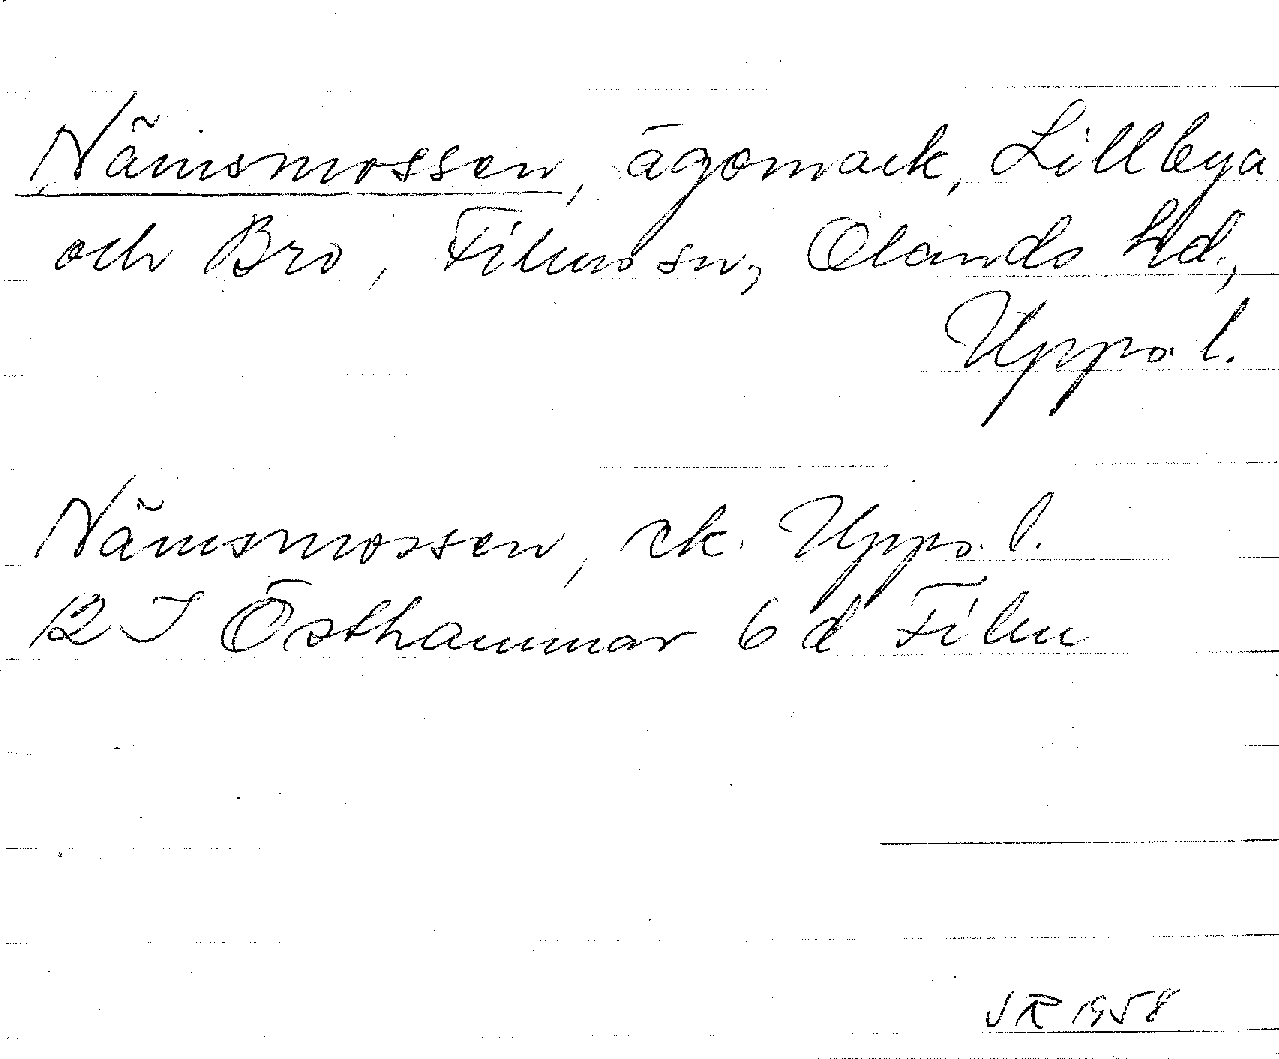 Nämsmossen, ägomark, Lillbya
och Bro, Films sn, Olands hd,
Upps. l.
Nämsmossen, ek. Upps. l.
12 I Östhammar 6 d Film
JR 1958